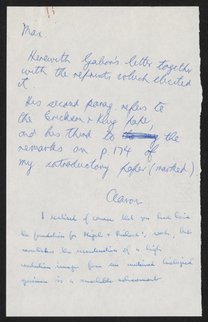 Max
Herewith Gabor's letter together
with the reprints which elicited
it.
His second parag. refers to
the Erickson & Klug paper
and his third to the
remarks on p. 174 of
my introductory paper (marked).
Aaron
I realised of course that you had laid
the foundation for Hugh & Richard's work, but
nonetheless the reconstruction of a high
resolution image from an unstained biological
specimen is a remarkable achievement